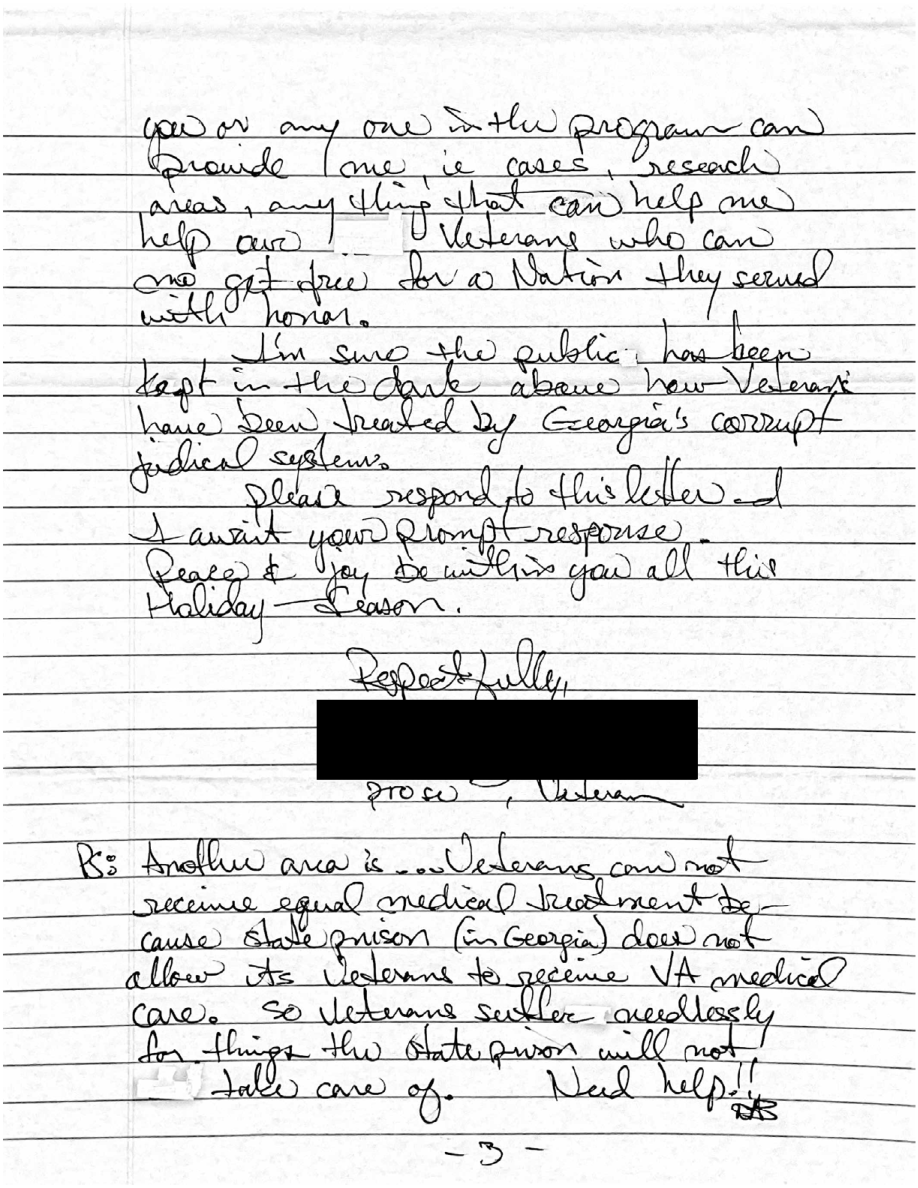 you or any one in the program can
provide me, ie cases, reseach
areas, any thing that can help me
help our Veterans who can
no get free for a Nation they served
with honor.
I'm sure the public has been
kept in the dark aboue how Veterans
have been treated by Georgia's corrupt
judical system.
Please respond to this letter and
I await your prompt response.
Peace & joy be within you all this
Holiday Season.
Respectfully,
pro se, Veteran
PS: Another area is ... Veterans can not
receive equal medical treatment be-
cause state prison (in Georgia) does not
allow its Veterans to receive VA medical
care. So Veterans suffer needlessly
for things the state prison will not
take care of. Need help!!
DAB
- 3 -